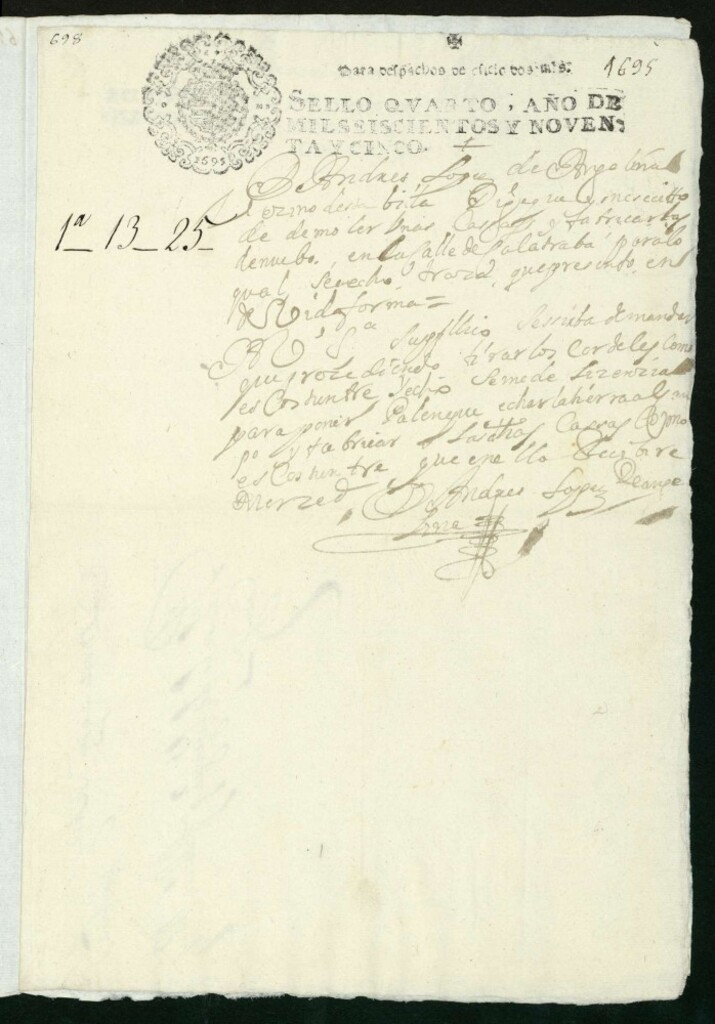 698
1695
Para despachos de oficio dos mrs.
SELLO QVARTO, AÑO DE
MILSEISCIENTOS Y NOVEN-
TA Y CINCO.
1695
1ª 13 25
D Andres Lopez de
Vezino desta billa Digo que
de demoler Unas Cassas y fabricarlas
de nuebo, en la Calle de Calatraba para lo
qual se echo traza, que presento en
devida forma=
A V Sª Supplico se sirba de mandar
que prozediendo tirar los Cordeles Como
es Costunbre y echo Se me de lizenzia
para poner Palenque echar la tierra al
po y fabricar las dhas Cassas Como
es Costunbre que en ello Rezibire
Merzed D Andres Lopez